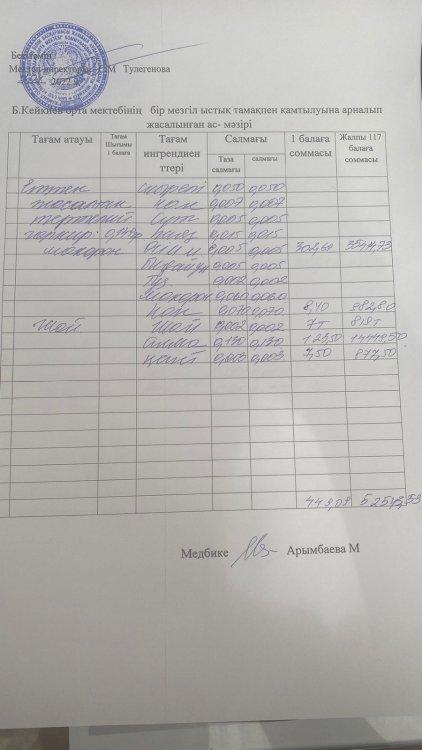 Бекітемін
Мектеп директоры М Тулегенова
2022 ж
Б.Кейкиев орта мектебінің бір мезгіл ыстық тамақпен қамтылуына арналып
жасалынған ас- мәзірі
Тағам атауы Тағам Шығымы 1 балаға Тағам ингредиенттері Салмағы Таза салмағы салмағы 1 балаға соммасы Жалпы 117 балаға соммасы
Еттен 0,050 0,050
жасалған нан 0,007 0,007
тефтели сүт 0,005 0,005
гарнир: пияз 0,015 0,015
макарон 0,005 0,005 302,69
0,005 0,005
тұз 0,002 0,002
макарон 0,060 0,060
нан 0,070 0,070 8,40 982,80
Шай шай 0,002 0,002 7т 819т
алма 0,130 0,130 123,50 14449,50
қант 0,003 0,003 7,50 877,50
449,09
Медбике Арымбаева М